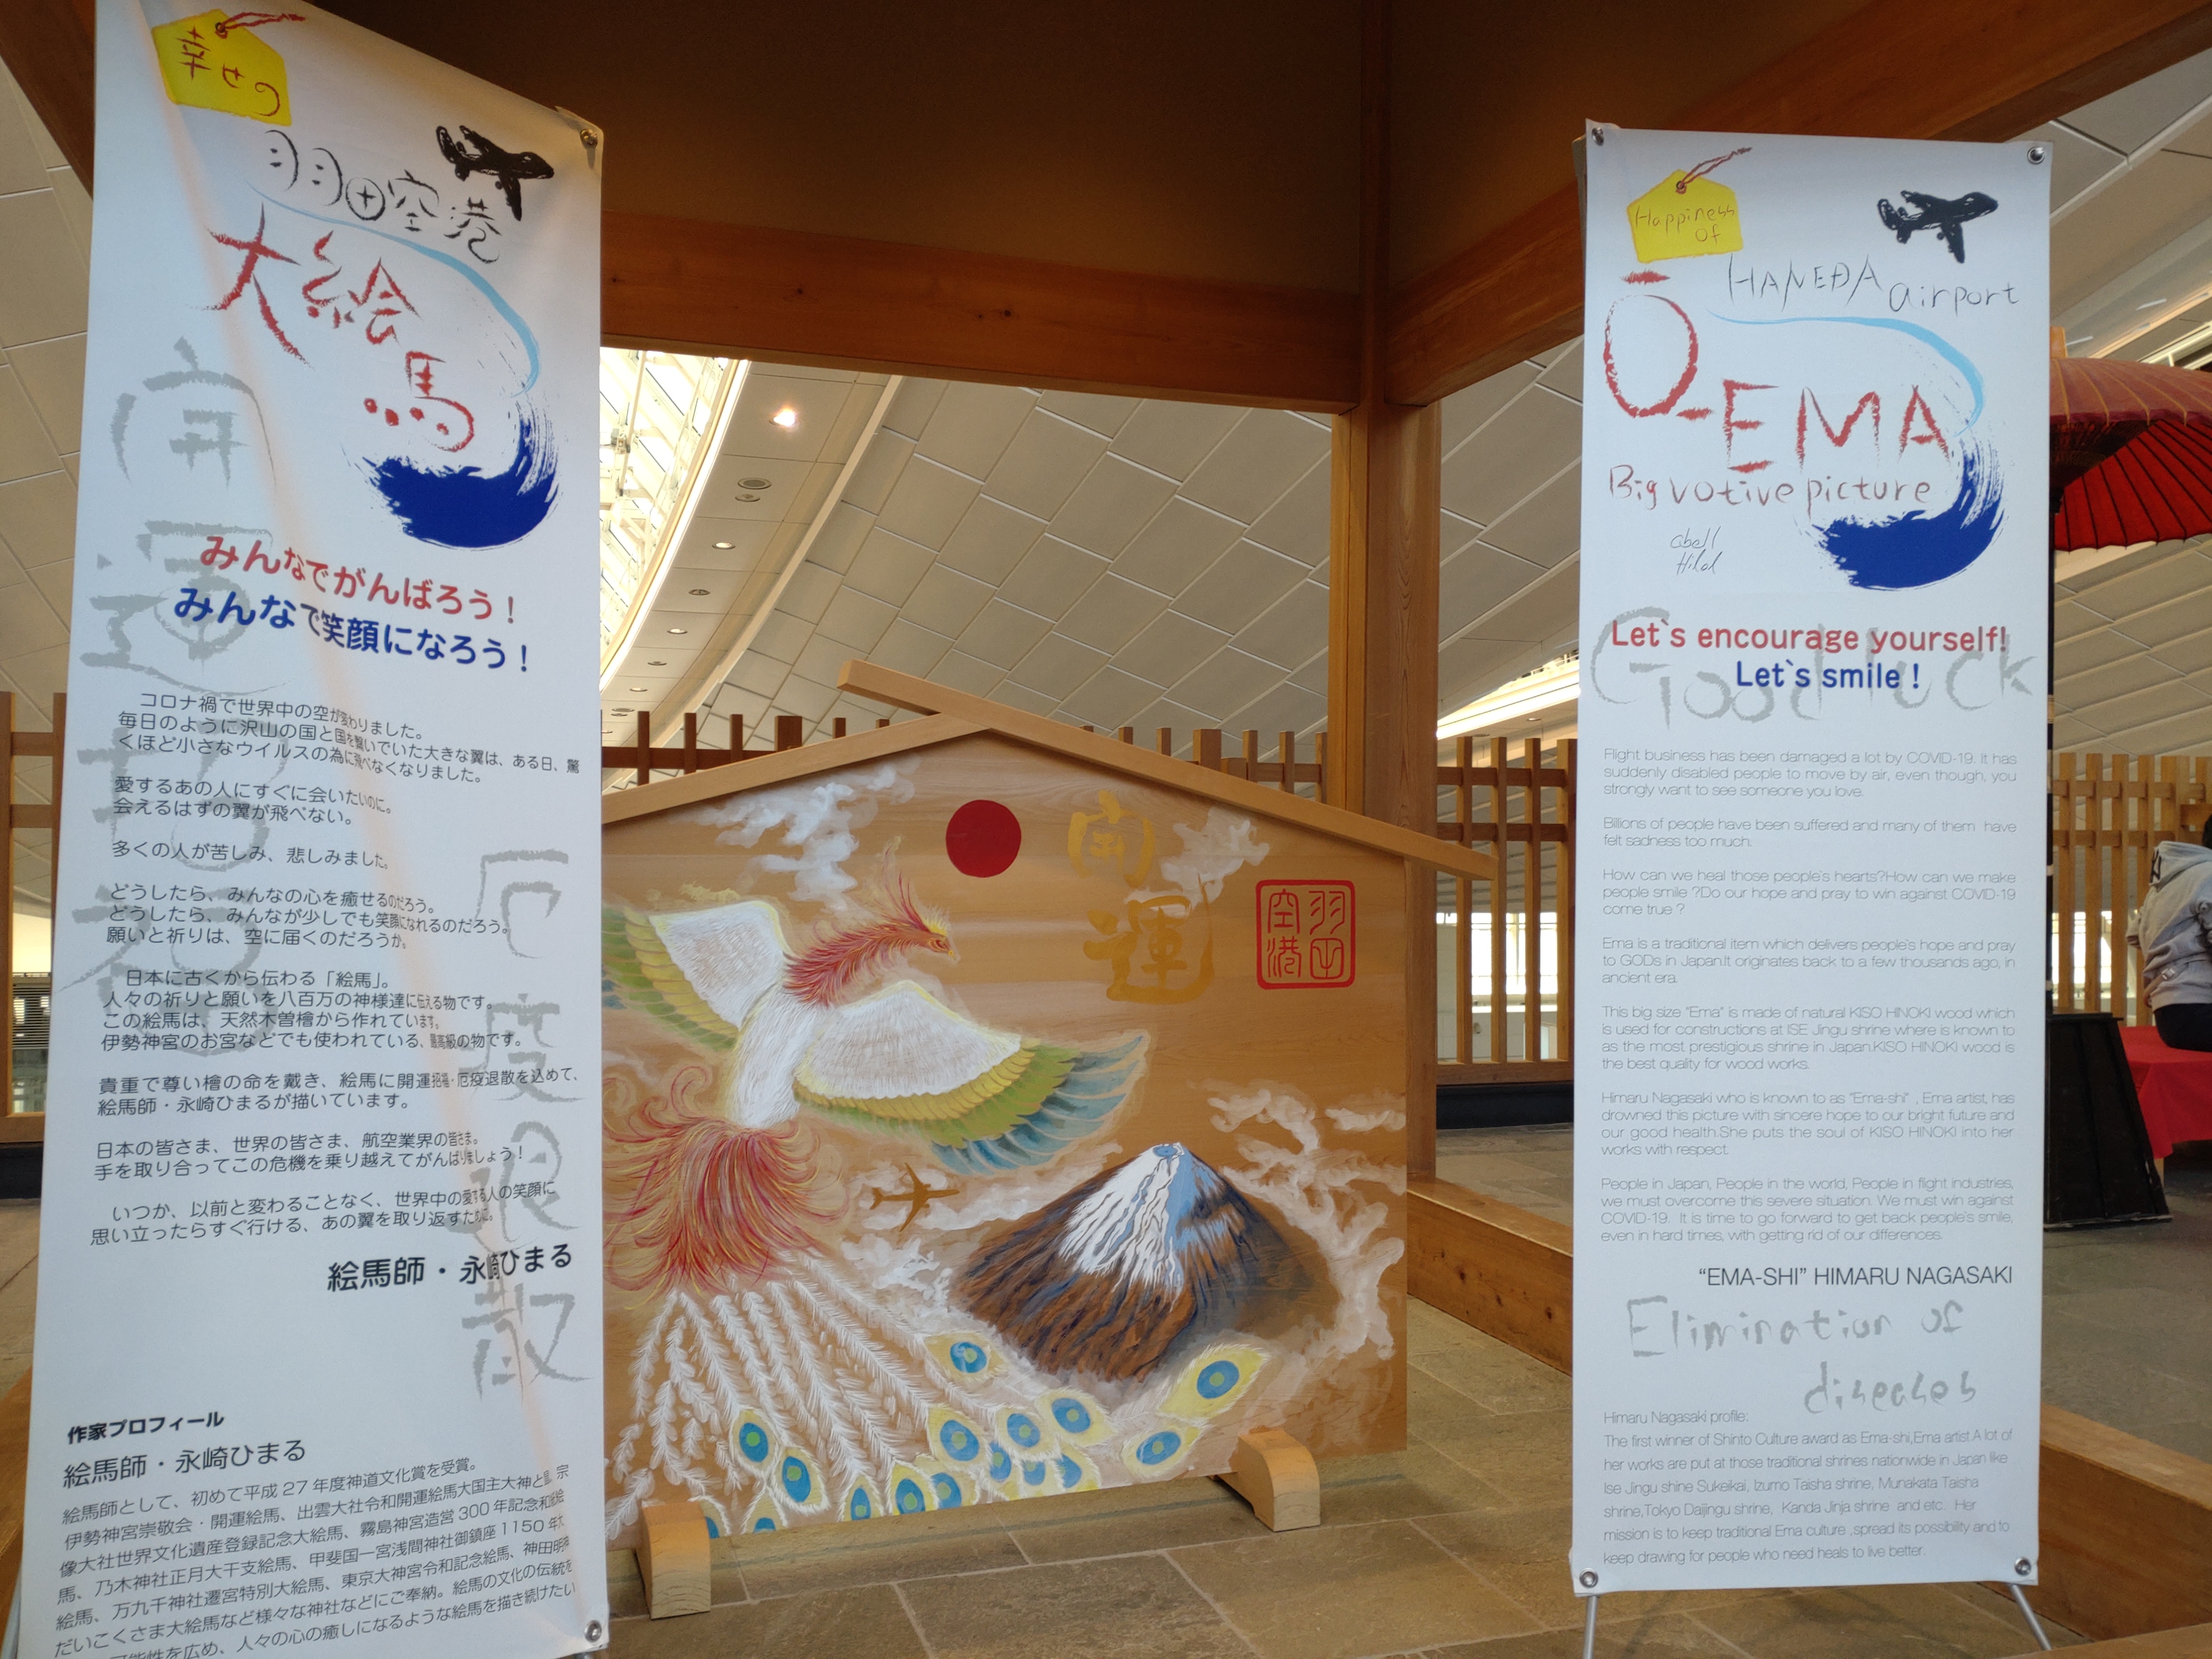 幸せの
羽田空港
大絵馬
開運招福
みんなでがんばろう！
みんなで笑顔になろう！
コロナ禍で世界中の空が変わりました。
毎日のように沢山の国と国を繋いでいた大きな翼は、ある日、驚
くほど小さなウイルスの為に飛べなくなりました。
愛するあの人にすぐに会いたいのに。
会えるはずの翼が飛べない。
多くの人が苦しみ、悲しみました。
どうしたら、みんなの心を癒せるのだろう。
どうしたら、みんなが少しでも笑顔になれるのだろう。
願いと祈りは、空に届くのだろうか。
日本に古くから伝わる「絵馬」。
人々の祈りと願いを八百万の神様達に伝える物です。
この絵馬は、天然木曽檜から作れています。
伊勢神宮のお宮などでも使われている、最高級の物です。
貴重で尊い檜の命を戴き、絵馬に開運招福・厄疫退散を込めて、
絵馬師・永崎ひまるが描いています。
日本の皆さま、世界の皆さま、航空業界の皆さま。
手を取り合ってこの危機を乗り越えてがんばりましょう！
いつか、以前と変わることなく、世界中の愛する人の笑顔に
思い立ったらすぐ行ける、あの翼を取り返すために。
絵馬師・永崎ひまる
厄疫退散
作家プロフィール
絵馬師・永崎ひまる
絵馬師として、初めて平成27年度神道文化賞を受賞。
伊勢神宮崇敬会・開運絵馬、出雲大社令和開運絵馬大国主大神と 宗
像大社世界文化遺産登録記念大絵馬、霧島神宮造営300年記念和紙絵
馬、乃木神社正月大干支絵馬、甲斐国一宮浅間神社御鎮座1150年大
絵馬、万九千神社遷宮特別大絵馬、東京大神宮令和記念絵馬、神田明神
だいこくさま大絵馬など様々な神社などにご奉納。絵馬の文化の伝統を
可能性を広め、人々の心の癒しになるような絵馬を描き続けたい
開運
羽田
空港
Happiness
of
HANEDA airport
Ō-EMA
Big votive picture
abell
Hilal
Good luck
Let`s encourage yourself!
Let`s smile !
Flight business has been damaged a lot by COVID-19. It has
suddenly disabled people to move by air, even though, you
strongly want to see someone you love.
Billions of people have been suffered and many of them have
felt sadness too much.
How can we heal those people's hearts?How can we make
people smile ?Do our hope and pray to win against COVID-19
come true ?
Ema is a traditional item which delivers people's hope and pray
to GODs in Japan.It originates back to a few thousands ago, in
ancient era.
This big size "Ema" is made of natural KISO HINOKI wood which
is used for constructions at ISE Jingu shrine where is known to
as the most prestigious shrine in Japan.KISO HINOKI wood is
the best quality for wood works.
Himaru Nagasaki who is known to as "Ema-shi" , Ema artist, has
drowned this picture with sincere hope to our bright future and
our good health.She puts the soul of KISO HINOKI into her
works with respect.
People in Japan, People in the world, People in flight industries,
we must overcome this severe situation. We must win against
COVID-19. It is time to go forward to get back people's smile,
even in hard times, with getting rid of our differences.
"EMA-SHI" HIMARU NAGASAKI
Elimination of
diseases
Himaru Nagasaki profile:
The first winner of Shinto Culture award as Ema-shi,Ema artist.A lot of
her works are put at those traditional shrines nationwide in Japan like
Ise Jingu shine Sukeikai, Izumo Taisha shrine, Munakata Taisha
shrine,Tokyo Daijingu shrine, Kanda Jinja shrine and etc. Her
mission is to keep traditional Ema culture ,spread its possibility and to
keep drawing for people who need heals to live better.